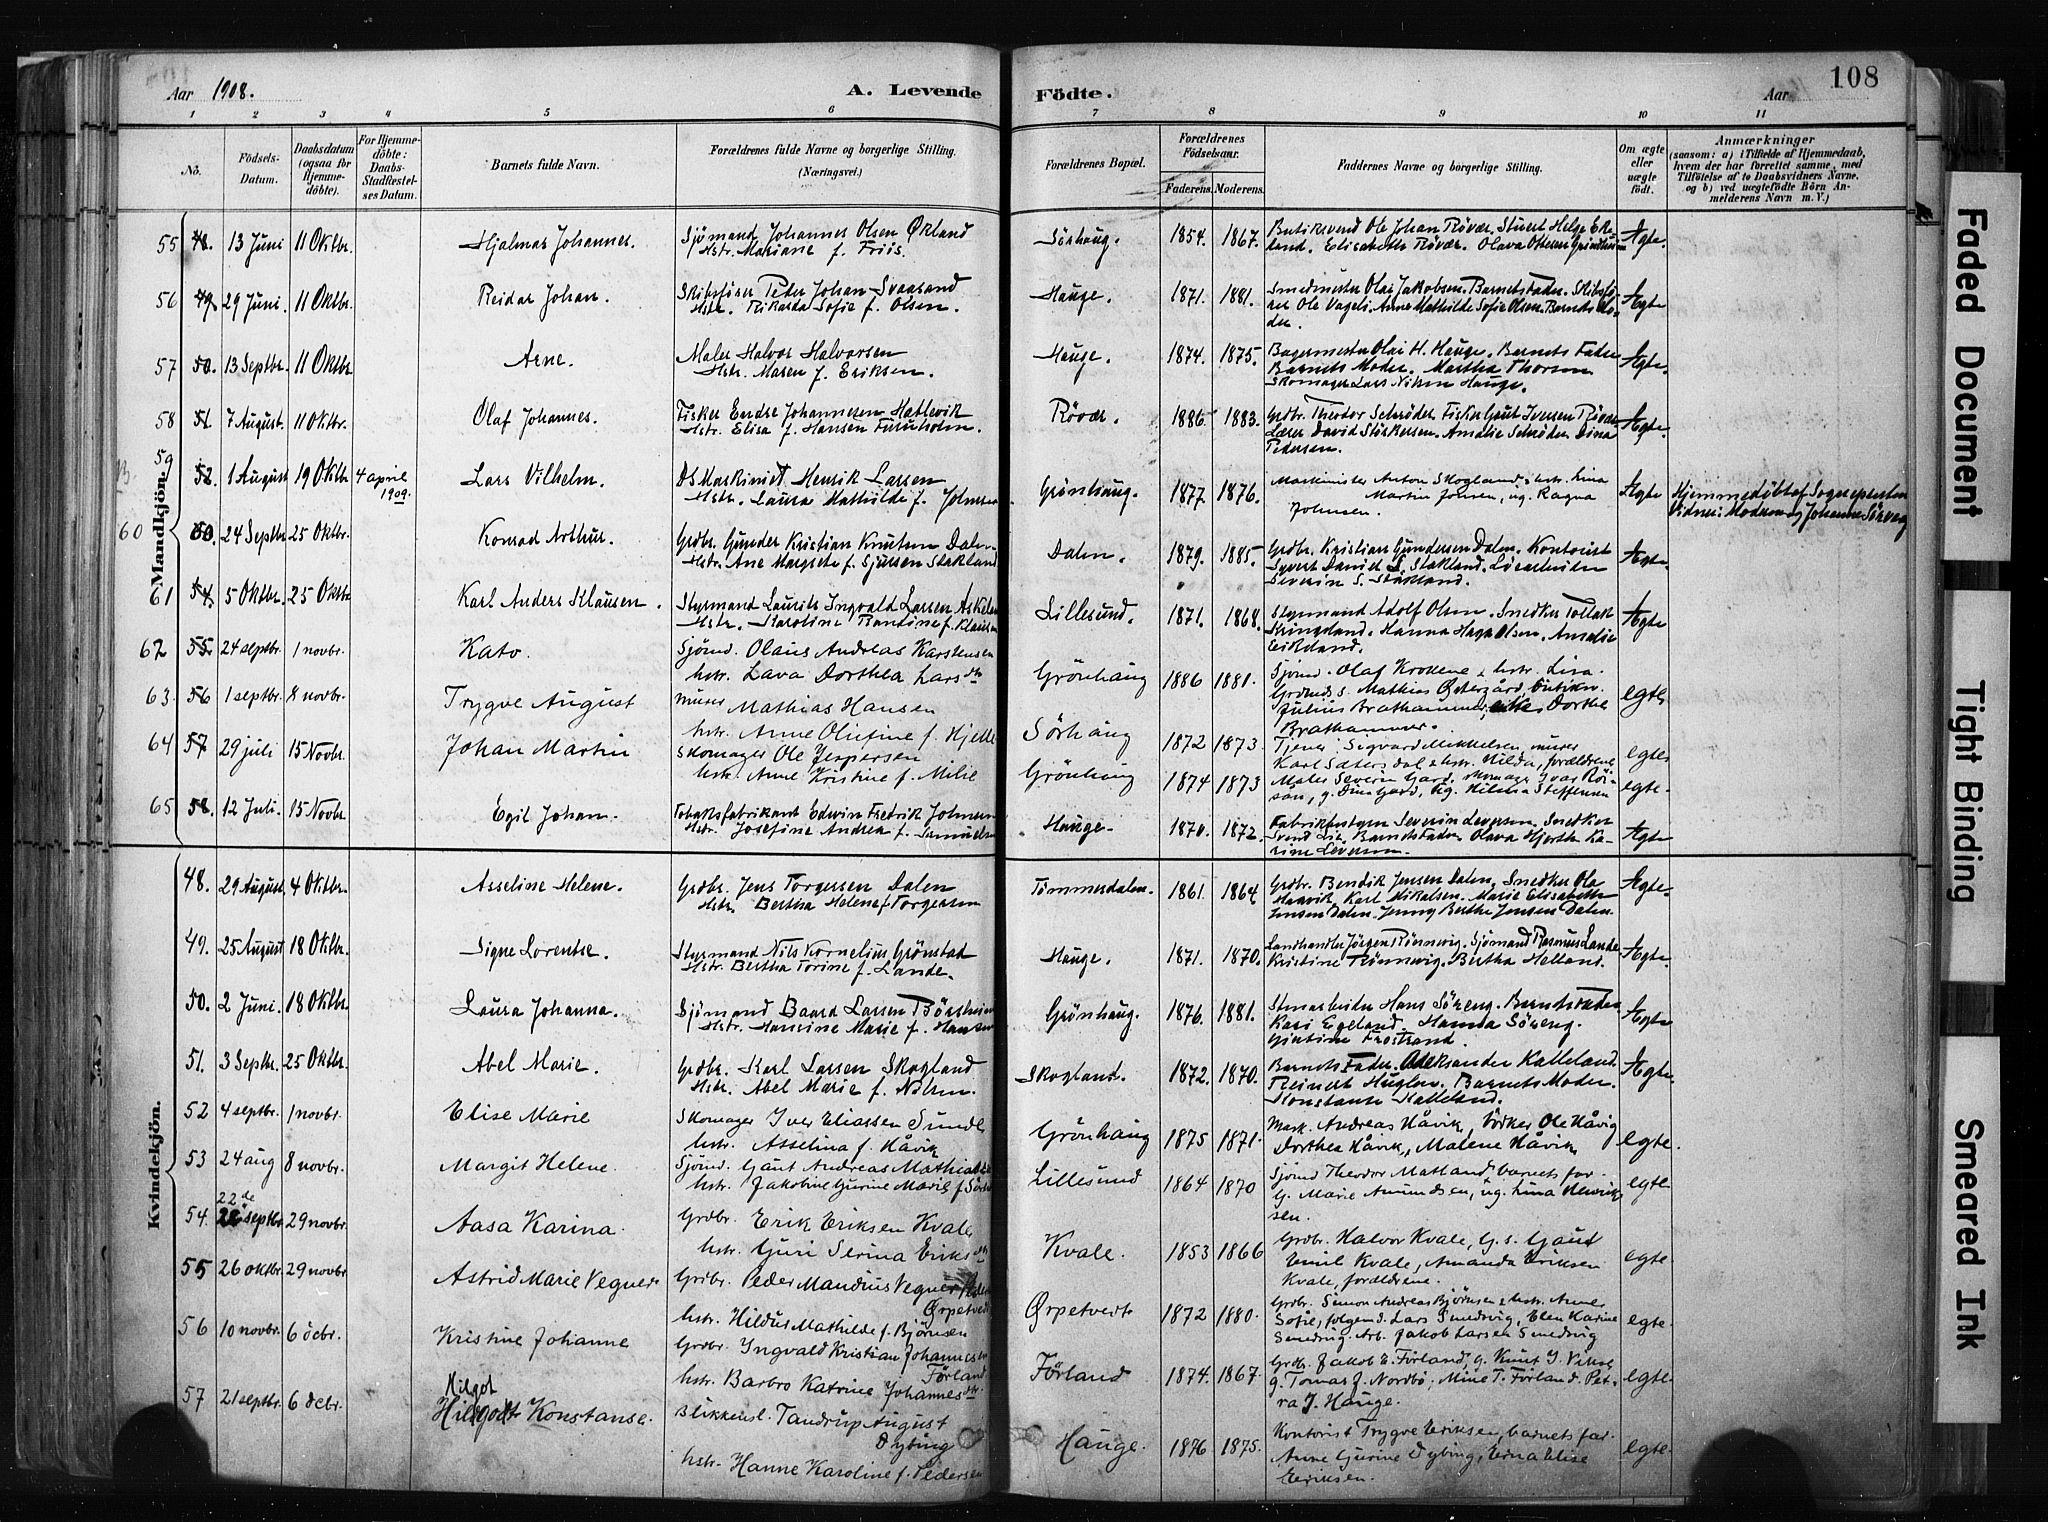 Aar 1908.
A. Levende
Födte.
Aar
108
1 2 3 4 5 6 7 8 9 10 11
No.
Födsels-
Datum.
Daabsdatum
(ogsaa for
Hjemme-
döbte).
For Hjemme-
döbte:
Daabs-
Stadfæstel-
ses Datum.
Barnets fulde Navn.
Forældrenes fulde Navne og borgerlige Stilling.
(Næringsvei.)
Forældrenes Bopæl.
Forældrenes
Födselsaar.
Faderens. Moderens.
Faddernes Navne og börgerlige Stilling.
Om ægte
eller
uægte
födt.
Anmærkninger
(saasom: a) i Tilfælde af Hjemmedaab,
hvem der har forrettet samme, med
Tilföielse af to Daabsvidners Navne,
og b) ved uægtefödte Börn An-
melderens Navn m. V.)
Mandkjön.
55 48. 13 Juni 11 Oktbr. Hjalmar Johannes. Sjömand Johannes Olsen Økland
Hstr. Mariane f. Friis.
Sörhaug. 1854. 1867. Ægte.
56 49. 29 Juni 11 Oktbr. Reidar Johan. Skibsförer Peder Johan Svaasand
Hstr. Rikarda Sofie f. Olsen.
Hauge. 1871. 1881. Smedmester Olai Jakobsen. Barnets Fader. Skibsfö-
rer Ole Vageli. Anne Mathilde Sofie Olsen. Barnets Mo-
der. Ægte
57 50. 13 Septbr. 11 Oktbr Arne. Maler Halvor Halvorsen
Hstr. Maren f. Eriksen.
Hauge. 1874. 1875. Bagermester Olai H. Hauge. Barnets Fader
Barnets Moder. Martha Thorsen
Skomager Lars Nilsen Hauge. Ægte.
58 51. 7 August. 11 Oktbr. Olaf Johannes. Fisker Endre Johannesen Hatlevik
Hstr. Elisa f. Hansen Furuholm.
Rövær. 1886. 1883. Grdbr. Theodor Schröder. Fisker Gaut Iversen Rövær
Lærer David Störkersen. Amalie Schröder. Dina
Pedersen. Ægte.
59 52. 1 August 19 Oktbr 4 april
1909. Lars Vilhelm. DSMaskinist Henrik Larsen
Hstr. Laura Mathilde f. Johnsen
Grönhaug. 1877 1876. Maskinister Anton Skogland, hstr. Lina
Martin Jonsen, ug. Ragna
Johnsen. Ægte Hjemmedöbt af Sognepresten
Vidner: Moderen og Johanne Sörvåg
60 24 Septbr 25 Oktbr. Konrad Arthur. Grdbr. Gunder Kristian Knutsen Dalen
Hstr. Ane Margrete f. Sjursen Stakland
Dalen. 1879. 1885. Grdbr. Kristian Gundersen Dalen. Kontorist
Syvert Daniel S. Stakland.
Severin S. Stakland. Ægte.
61 54. 5 Oktbr. 25 Oktbr Karl Anders Klausen. Styrmand Laurits Ingvald Larsen
Hstr. Karoline f. Klausen
Lillesund. 1871. 1868. Styrmand Adolf Olsen. Snedker Tollak
Kringeland. Hanna Haga Olsen. Amalie
Eikeland. Ægte
62 55 24 septbr. 1 novbr. Kato. Sjömd. Olaus Andreas Karstensen
hstr. Lava Dorthea Larsdtr
Grönhaug 1886 1881. Sjömd. Olaf Krokene & hstr. Lina.
Grdmds s. Mathias Østergård, butikn.
Julius Brathammer, enke Dorthe
Brathammer. egte
63. 56 1 septbr. 8 novbr. Trygve August murer Mathias Hansen
hstr. Anne Olufine f. Hjelle
Sörhaug 1872 1873. Tjener Sigvard Mikkelsen, murer
Karl Sætersdal & hstr. Hilda, forældrene egte
64 57 29 juli 15 Novbr. Johan Martin Skomager Ole Jespersen
hstr. Anne Kristine f. Milje
Grönhaug 1874 1873 Maler Severin Gard, skomager Ivar Röi-
sås, g. Dina Gard, ug. Hilma Steffensen egte-
65 58. 12 Juli. 15 Novbr Egil Johan. Tobaksfabrikant Edvin Fredrik Johnsen
Hstr. Josefine Andrea f. Samuelsen
Hauge- 1870. 1872. Fabrikbestyrer Severin Leversen. Snedker
Svend Lie. Barnets Fader. Olava Hjorth. Ka-
rine Leversen. Ægte
Kvindekjön.
48. 29 August 4 Oktbr. Asseline Helene. Grdbr. Jens Torgersen Dalen
Hstr. Bertha Helene f. Torgersen
Tömmerdalen. 1861. 1864 Grdbr. Bendik Jensen Dalen, Snedker Ola
Haavik, Karl Mikalsen. Marie Elisabeth
Jensen Dalen. Jenny Berthe Jensen Dalen. Ægte.
49. 25 August 18 Oktbr. Signe Lorentse. Styrmand Nils Kornelius Grönstad
Hstr. Bertha Torine f. Lande.
Hauge. 1871. 1870. Landhandler Jörgen Rönnevig. Sjömand Rasmus Lande
Kristine Rönnevig. Bertha Helland. Ægte.
50. 2 Juni. 18 Oktbr. Laura Johanna. Sjömand Baard Larsen Börsheim
Hstr. Hansine Marie f. Hansen
Grönhaug. 1876. 1881. Stenarbeider Hans Söreng. Barnets Fader
Kari Egeland. Hanna Söreng.
Gjertine Frostrand. Ægte
51. 3 Septbr. 25 Oktbr Abel Marie. Grdbr. Karl Larsen Skogland
Hstr. Abel Marie f. Nilsen.
Skogland. 1872. 1870. Barnets Fader. Aleksander Kalleland.
Reinert Huglen. Barnets Moder.
Konstanse Kalleland. Ægte.
52 4 septbr. 1 novbr. Elise Marie Skomager Iver Eliassen Sunde
hstr. Asselina f. Håvik
Grönhaug 1875 1871. Mask. Andreas Håvik, Bödker Ole Håvig
Dorthea Håvik, Malene Håvik egte.
53 24 aug 8 novbr. Margit Helene. Sjömd. Gaut Andreas Mathiassen
hstr. Jakobine Gurine Marie f.
Lillesund 1864 1870 Sjömd Theodor Matland, barnets far.
g. Marie Amundsen, ug. Lina Henrik-
sen. egte
54. 22de septbr. 29 novbr. Aasa Karina. Grdbr. Erik Eriksen Kvale
hstr. Guri Serina Eriksdtr
Kvale. 1853 1866 Grdbr. Halvor Kvale, g. s. Gaut
Emil Kvale, Amanda Eriksen
Kvale, forældrene. egte.
55 26 oktbr. 29 novbr Astrid Marie Vegner Grdbr. Peder Mandius Vegner
Ørpetvedt
hstr. Hildur Mathilde f. Björnsen
Ørpetvedt 1872 1880. Grdbr. Simon Andreas Björnsen & hstr. Anne
Sofie, folgem. Lars Smedsvig, Elen Karine
Smedsvig. Arb. Jakob Larsen Smedsvig egte.
56 10 novbr. 6 decbr. Kristine Johanne Grdbr. Ingvald Kristian Johannesen
Förland
hstr. Barbro Katrine Johannesdtr.
Förland 1874. 1867. Grdbr. Jakob E. Förland, g. Knut J. Vikse
g. Tomas J. Nordbö, Mine T. Förland. Pet-
ra J. Hauge. egte.
57 21 septbr. 6 decbr. Hilgot
Hildgodt Konstanse. Blikkensl. Tandrup August
Dybing
hstr. Hanne Karoline f. Pedersen
Hauge. 1876 1875. Kontorist Trygve Eriksen, barnets far.
Anne Gurine Dybing, Erna Elise
Eriksen. egte.
Faded Document
Tight Binding
Smeared Ink